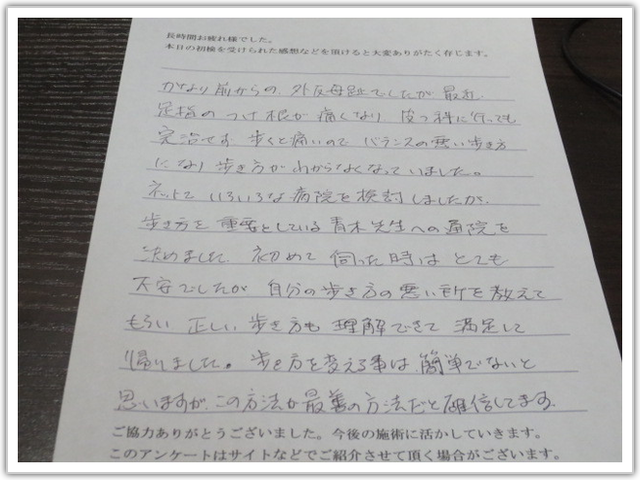 長時間お疲れ様でした。
本日の初検を受けられた感想などを頂けると大変ありがたく存じます。
かなり前からの、外反母趾でしたが最近
足指のつけ根が痛くなり 皮フ科に行っても
完治せず 歩くと痛いので バランスの悪い歩き方
になり 歩き方がわからなくなっていました。
ネットで いろいろな病院を検討しましたが、
歩き方を重要としている青木先生への通院を
決めました。初めて 伺った時は とても
不安でしたが 自分の歩き方の悪い所を教えて
もらい 正しい歩き方も 理解できて 満足して
帰りました。歩き方を変える事は、簡単でないと
思いますが、この方法が最善の方法だと確信してます。
ご協力ありがとうございました。今後の施術に活かしていきます。
このアンケートはサイトなどでご紹介させて頂く場合がございます。